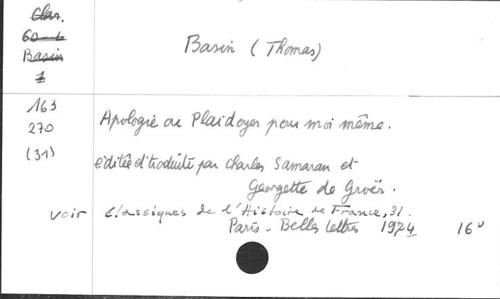 Clas.
60-6
Basin
1
Basin (Thomas)
163
270
(31)
Apologie ou Plaidoyer pour moi même.
éditée et traduite par Charles Samaran et
Georgette de Groër.
voir Classiques de l'Histoire de France, 31.
Paris - Belles Lettres 1974 16°